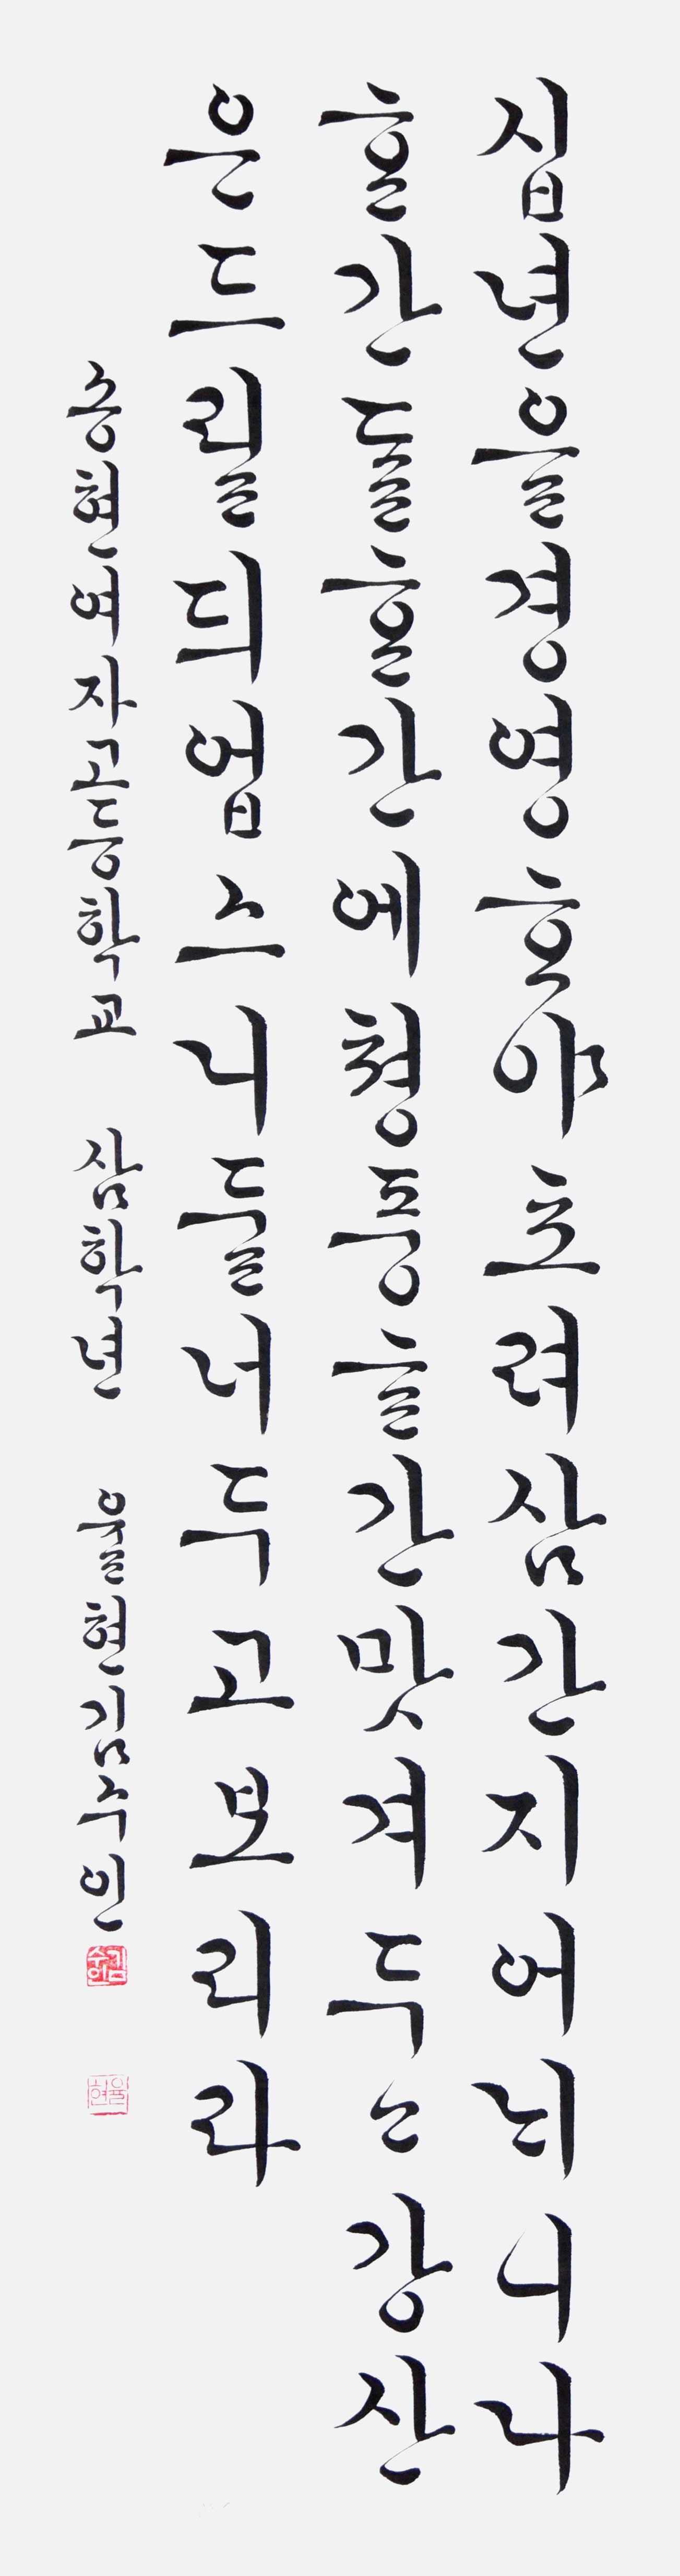 십년을경영ᄒᆞ야초려삼간지어ᄂᆡ니나
ᄒᆞᆫ간ᄃᆞᆯᄒᆞᆫ간에쳥풍ᄒᆞᆫ간맛겨두고강산
은드릴듸업스니둘너두고보리라
송현여자고등학교 삼학년 율현김수인
김수인
율현